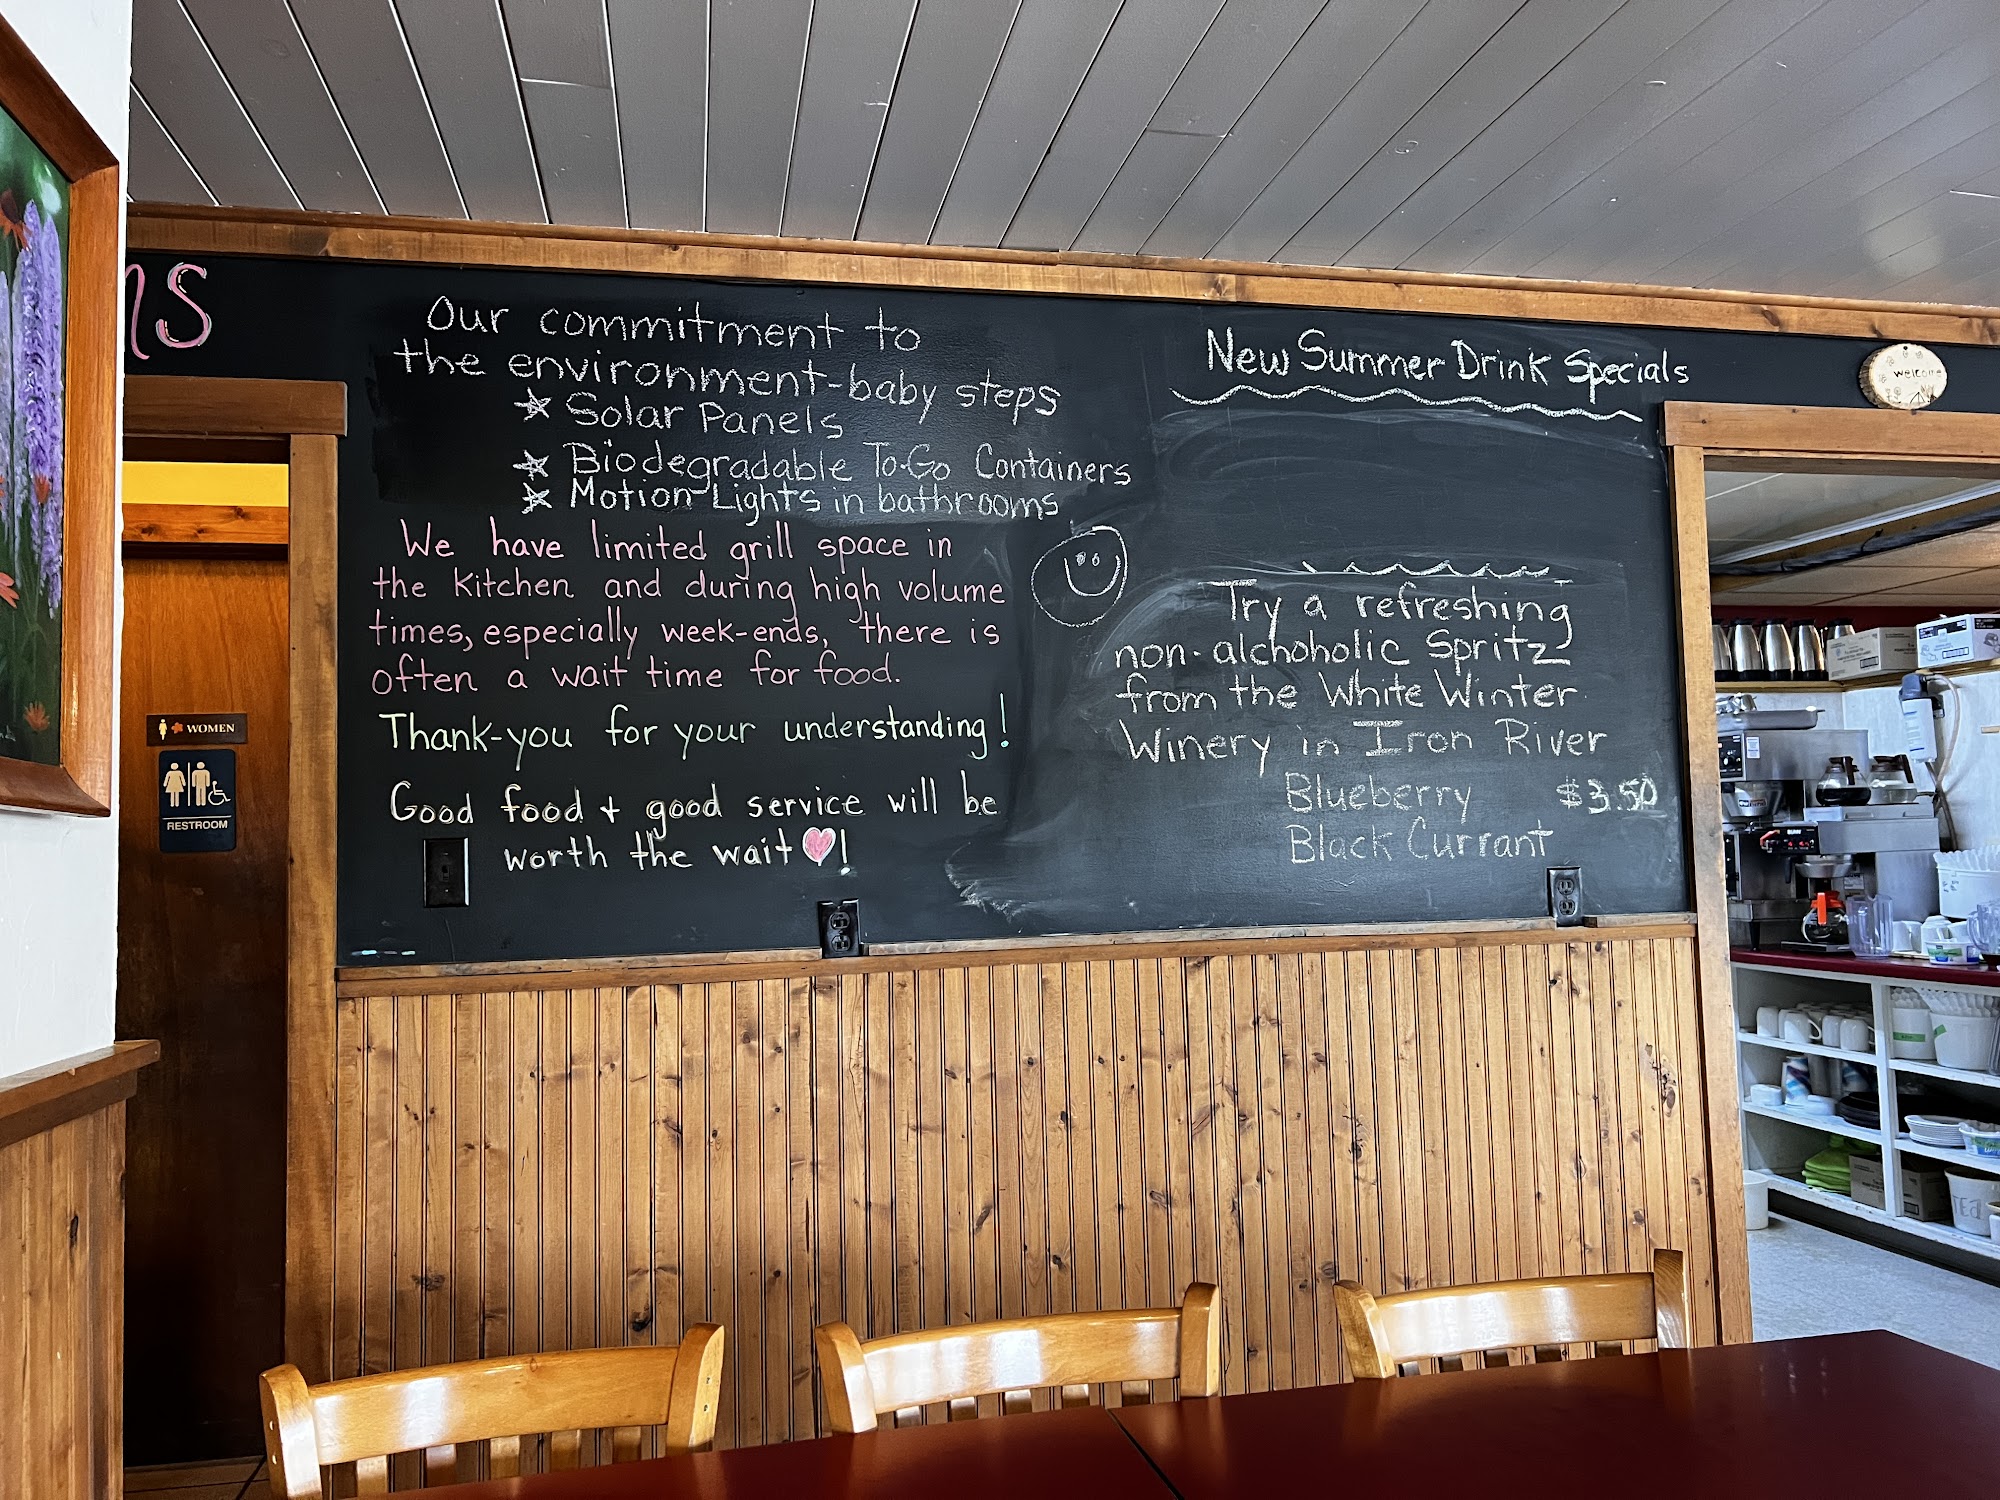 ns
Our commitment to
the environment-baby steps
Solar Panels
Biodegradable To-Go Containers
Motion Lights in bathrooms
We have limited grill space in
the kitchen and during high volume
times, especially week-ends, there is
often a wait time for food.
Thank-you for your understanding!
Good food + good service will be
worth the wait !
New Summer Drink Specials
Try a refreshing
non-alchoholic Spritz
from the White Winter
Winery in Iron River
Blueberry $3.50
Black Currant
welcome
WOMEN
RESTROOM
TEA